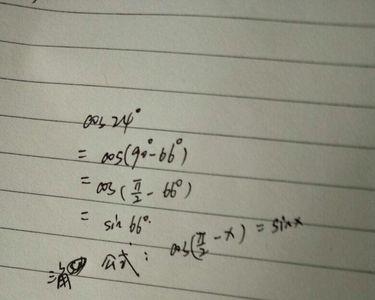 cos 24°
= cos(90°-66°)
= cos(π/2 - 66°)
= sin 66°.
公式: cos(π/2 - x) = sin x